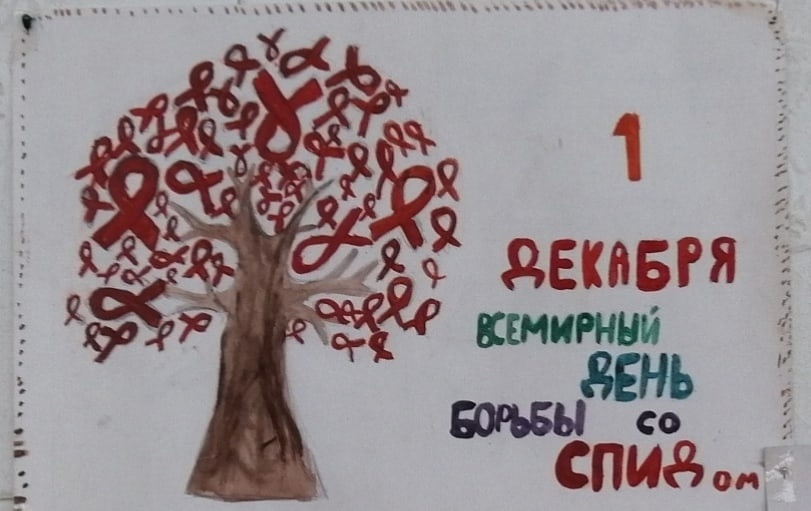 1
ДЕКАБРЯ
ВСЕМИРНЫЙ
ДЕНЬ
БОРЬБЫ СО
СПИДом